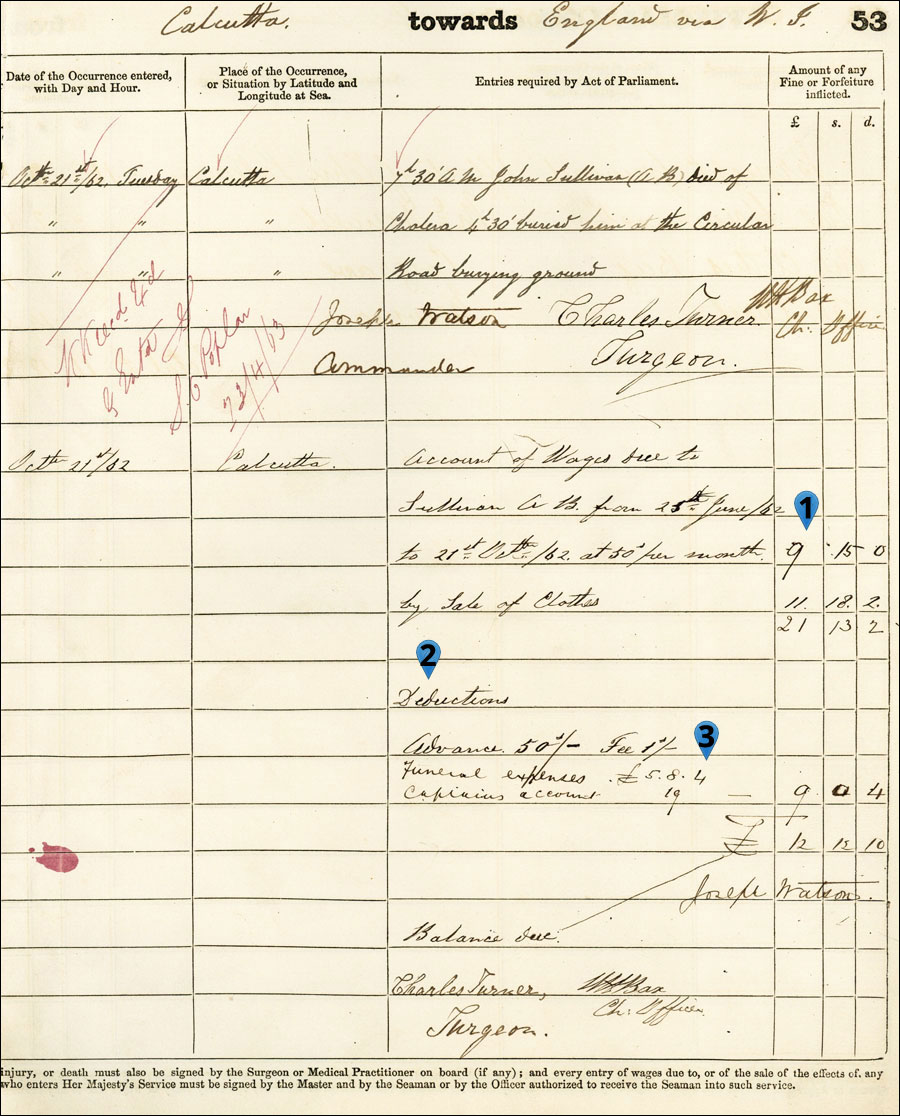 Calcutta. towards England via W. I. 53
Date of the Occurrence entered, with Day and Hour.
Place of the Occurrence, or Situation by Latitude and Longitude at Sea.
Entries required by Act of Parliament.
Amount of any Fine or Forfeiture inflicted.
£ s. d.
Octr 21st/62, Tuesday Calcutta 7h 30' A M John Sullivan (A B) died of
" " " Cholera 4h 30' buried him at the Circular
" " " Road burying ground
Joseph Watson Charles Turner. WH Bax
Commander Surgeon. Ch: Office
Poplar
23/4/63
Octr 21st/62 Calcutta. Account of Wages due to
Sullivan A B. from 25th June/62
1
to 21st Octr/62. at 50s per month. 9 15 0
by Sale of Clothes 11. 18. 2.
21 13 2
2
Deductions
Advance. 50s/- Fee 1s/-
3
Funeral expenses . £ 5. 8. 4
Captains account 19 — 9 0 4
£ 12 12 10
Joseph Watson.
Balance due.
Charles Turner, WH Bax
Surgeon. Ch: Officer.
injury, or death must also be signed by the Surgeon or Medical Practitioner on board (if any); and every entry of wages due to, or of the sale of the effects of, any
who enters Her Majesty's Service must be signed by the Master and by the Seaman or by the Officer authorized to receive the Seaman into such service.